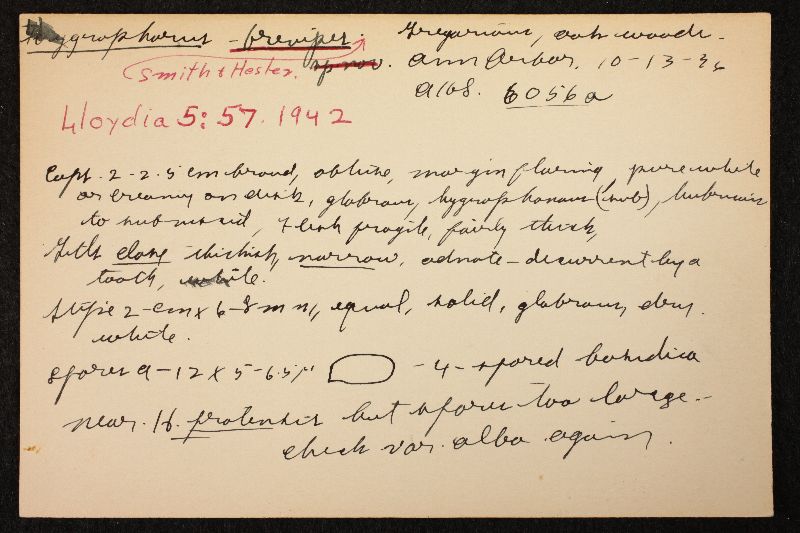 Hygrophorus - brevipes. Gregarious, oak woods -
Smith & Hesler. sp nov. Ann Arbor, 10-13-36
AHS. 6056a
Lloydia 5: 57. 1942
Caps. 2-2.5 cm broad, obtuse, margin flaring, pure white
or creamy on disk, glabrous, hygrophanous (sub), lubricous
to subviscid, flesh fragile, fairly thick,
Gills close thickish, narrow, adnate-decurrent by a
tooth, white.
Stipe 2-cm x 6-8 mm, equal, solid, glabrous, dry.
white.
Spores 9-12 x 5-6.5 µ - 4-spored basidia
near H. pratensis but spores too large.-
check var. alba again.